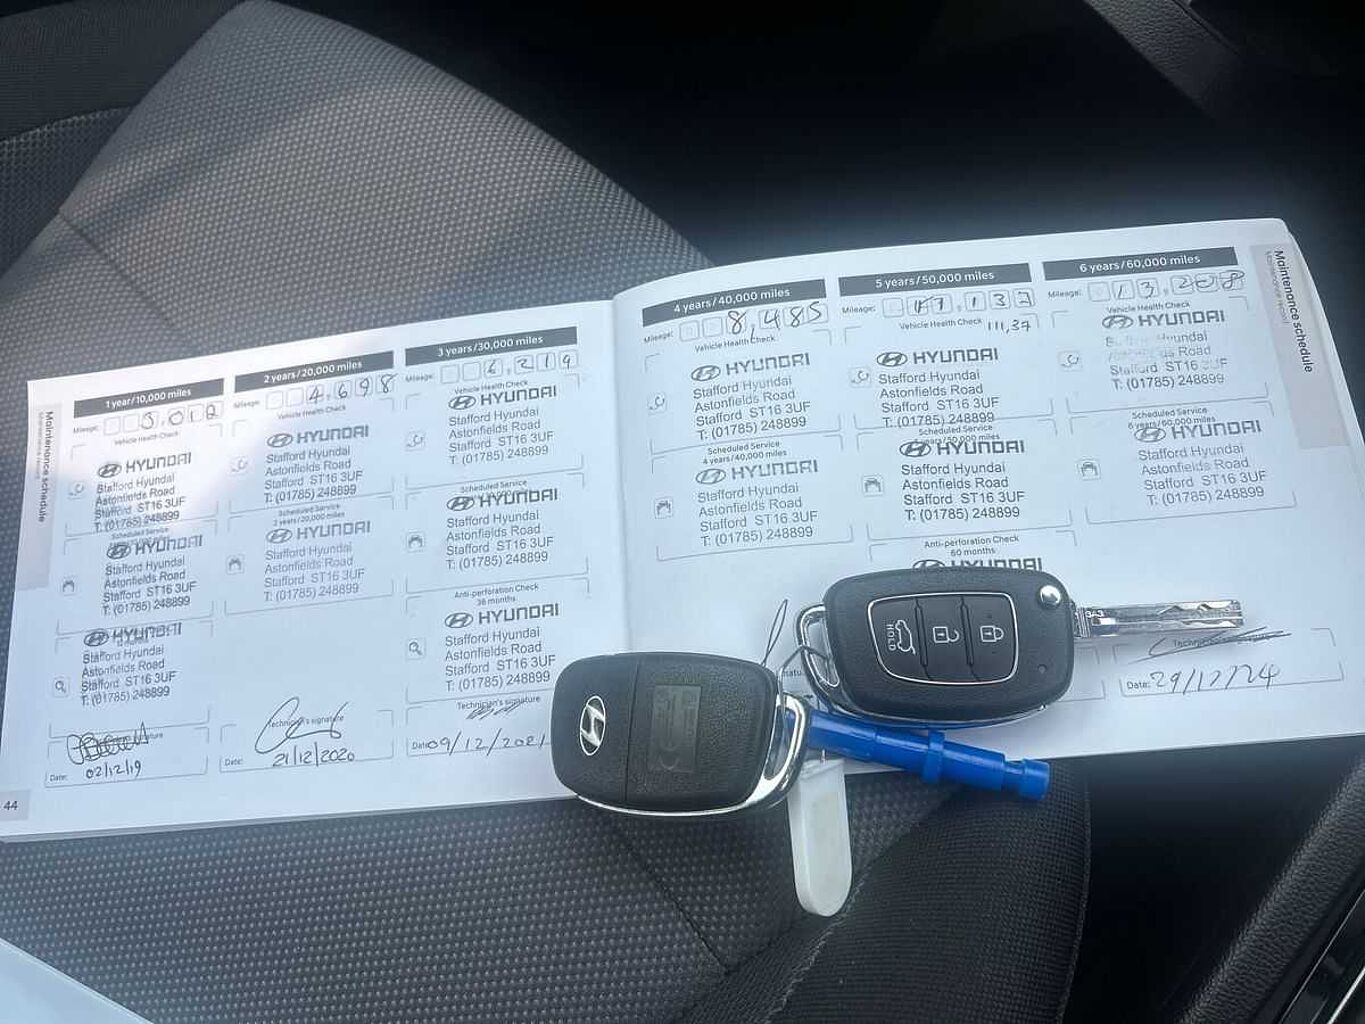 Maintenance schedule
1 year/10,000 miles
Mileage: 3,012
Vehicle Health Check
HYUNDAI
Stafford Hyundai
Astonfields Road
Stafford ST16 3UF
T: (01785) 248899
Scheduled Service
HYUNDAI
Stafford Hyundai
Astonfields Road
Stafford ST16 3UF
T: (01785) 248899
HYUNDAI
Stafford Hyundai
Astonfields Road
Stafford ST16 3UF
T: (01785) 248899
Date: 02/12/19
44
2 years/20,000 miles
Mileage: 4,698
Vehicle Health Check
HYUNDAI
Stafford Hyundai
Astonfields Road
Stafford ST16 3UF
T: (01785) 248899
Scheduled Service
2 years/20,000 miles
HYUNDAI
Stafford Hyundai
Astonfields Road
Stafford ST16 3UF
T: (01785) 248899
Technician's signature
Date: 21/12/2020
3 years/30,000 miles
Mileage: 6,219
Vehicle Health Check
HYUNDAI
Stafford Hyundai
Astonfields Road
Stafford ST16 3UF
T: (01785) 248899
Scheduled Service
HYUNDAI
Stafford Hyundai
Astonfields Road
Stafford ST16 3UF
T: (01785) 248899
Anti-perforation Check
36 months
HYUNDAI
Stafford Hyundai
Astonfields Road
Stafford ST16 3UF
T: (01785) 248899
Technician's signature
Date: 09/12/2021
4 years/40,000 miles
Mileage: 8,485
Vehicle Health Check
HYUNDAI
Stafford Hyundai
Astonfields Road
Stafford ST16 3UF
T: (01785) 248899
Scheduled Service
4 years/40,000 miles
HYUNDAI
Stafford Hyundai
Astonfields Road
Stafford ST16 3UF
T: (01785) 248899
5 years/50,000 miles
Mileage:
Vehicle Health Check 111,37
HYUNDAI
Stafford Hyundai
Astonfields Road
Stafford ST16 3UF
T: (01785) 248899
Scheduled Service
HYUNDAI
Stafford Hyundai
Astonfields Road
Stafford ST16 3UF
T: (01785) 248899
Anti-perforation Check
60 months
HYUNDAI
6 years/60,000 miles
Mileage: 13,208
Vehicle Health Check
HYUNDAI
Stafford Hyundai
Astonfields Road
Stafford ST16 3UF
T: (01785) 248899
Scheduled Service
6 years/60,000 miles
HYUNDAI
Stafford Hyundai
Astonfields Road
Stafford ST16 3UF
T: (01785) 248899
Date: 29/12/24
Maintenance schedule
HOLD